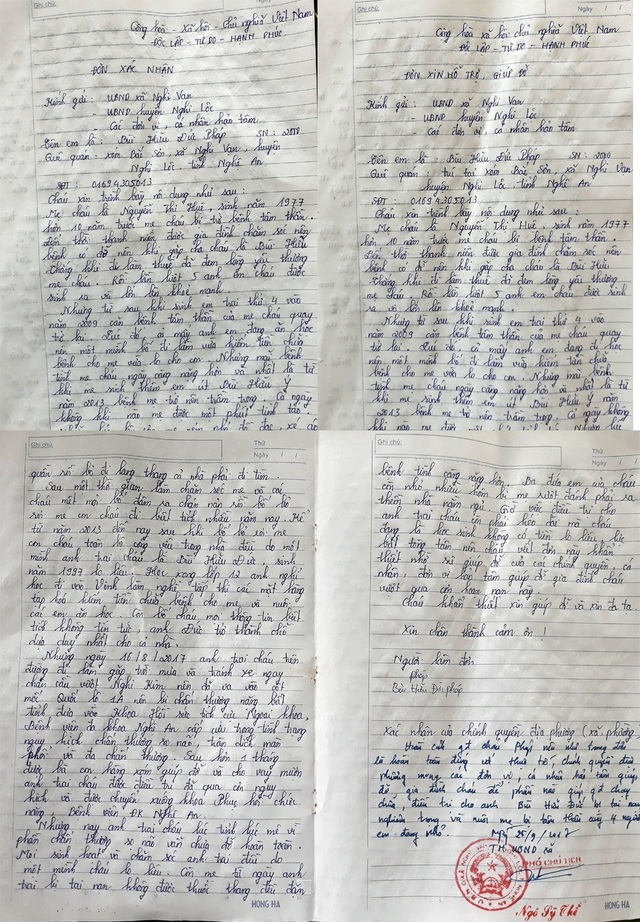 Ghi chú:
Ngày / /
Cộng hòa - Xã hội - Chủ nghĩa Việt Nam
ĐỘC LẬP - TỰ DO - HẠNH PHÚC
ĐƠN XÁC NHẬN
Kính gửi: - UBND xã Nghi Vạn
- UBND huyện Nghi Lộc
- Các đơn vị, cá nhân hảo tâm
Tên em là: Bùi Hữu Đức Pháp SN:
Quê quán: xóm Bắc Sơn, xã Nghi Vạn, huyện
Nghi Lộc - tỉnh Nghệ An
SĐT: 01694305013
Cháu xin trình bày nội dung như sau:
Mẹ cháu là Nguyễn Thị Huệ, sinh năm 1977
hơn 10 năm trước mẹ cháu bị bệnh tâm thần.
đến thời thanh niên được gia đình chăm sóc nên
bệnh có đỡ nên khi gặp cha cháu là Bùi Hữu
Thắng khi đi làm thuê đã đem lòng yêu thương
mẹ cháu. Rồi lần lượt 5 anh em cháu được
sinh ra và lớn lên khỏe mạnh.
Nhưng từ sau khi sinh em trai thứ 4 vào
năm 2009 căn bệnh tâm thần của mẹ cháu quay
trở lại. Lúc đó, cả mấy anh em đang ăn học
nên một mình bố đi làm vừa kiếm tiền chữa
bệnh cho mẹ vừa lo cho con. Nhưng
tình mẹ cháu ngày càng nặng hơn và nhất là từ
khi mẹ sinh thêm em út Bùi Hữu Ý
năm 2013 bệnh mẹ trở nên trầm trọng. Cả ngày
không khi nào mẹ được một phút tỉnh táo.
Ghi chú:
Ngày / /
Cộng hòa xã hội chủ nghĩa Việt Nam
ĐỘC LẬP - TỰ DO - HẠNH PHÚC
ĐƠN XIN HỖ TRỢ, GIÚP ĐỠ
Kính gửi: - UBND xã Nghi Vạn
- UBND huyện Nghi Lộc
- Các đơn vị, cá nhân hảo tâm
Tên em là: Bùi Hữu Đức Pháp SN:
Quê quán: trú tại xóm Bắc Sơn, xã Nghi Vạn
huyện Nghi Lộc, tỉnh Nghệ An
SĐT: 01694305013
Cháu xin trình bày nội dung như sau:
Mẹ cháu là Nguyễn Thị Huệ, sinh năm 1977
hơn 10 năm trước mẹ cháu bị bệnh tâm thần.
Đến thời thanh niên được gia đình chăm sóc nên
bệnh có đỡ nên khi gặp cha cháu là Bùi Hữu
Thắng khi đi làm thuê đã đem lòng yêu thương
mẹ cháu. Rồi lần lượt 5 anh em cháu được sinh
ra và lớn lên khỏe mạnh.
Nhưng từ sau khi sinh em trai thứ 4 vào
năm 2009 căn bệnh tâm thần của mẹ cháu quay
trở lại. Lúc đó, cả mấy anh em đang đi học
nên một mình bố đi làm vừa kiếm tiền chữa
bệnh cho mẹ vừa lo cho con. Nhưng
tình mẹ cháu ngày càng nặng hơn và nhất là từ
khi mẹ sinh thêm em út Bùi Hữu Ý năm
2013 bệnh mẹ trở nên trầm trọng. Cả ngày không
Ghi chú:
Thứ
Ngày / /
quần áo bỏ đi lang thang cả nhà phải đi tìm.
Sau một thời gian làm chăm sóc mẹ và các
cháu mệt mỏi bố đâm ra chán nản rồi bố bỏ
rơi mẹ con cháu đi biệt tích nhiều năm nay. Kể
từ năm 2013 đến nay sau khi bố bỏ rơi mẹ
con cháu toàn lo công việc trong nhà đều do một
mình anh trai cháu là Bùi Hữu Đức, sinh
năm 1997 lo liệu. Học xong lớp 12 anh nghỉ
học đi vào Vinh làm nghề tiếp thị các mặt hàng
tạp hóa kiếm tiền chữa bệnh cho mẹ và nuôi
các em ăn học. Còn bố cháu mọi thông tin biệt
tích không tin tức, anh Đức trở thành chỗ
dựa duy nhất cho cả nhà.
Nhưng ngày 16/8/2017 anh trai cháu trên
đường đi làm gặp trời mưa và tránh xe ngay
chân cầu vượt Nghi Kim nên đã va vào cột
mốc Quốc lộ 1A nên bị chấn thương nặng bất
tỉnh đưa vào Khoa Hồi sức tích cực Ngoại khoa,
Bệnh viện đa khoa Nghệ An cấp cứu trong tình trạng
nguy kịch chấn thương sọ não, tràn dịch màn
phổi và đa chấn thương. Sau hơn 1 tháng
được bà con hàng xóm giúp đỡ và cho vay mượn
anh trai cháu được điều trị đã qua cơn nguy
kịch và được chuyển xuống khoa Phục hồi chức
năng, Bệnh viện ĐK Nghệ An.
Nhưng nay anh trai cháu lúc tỉnh lúc mê vì
phần chấn thương sọ não vẫn chưa đỡ hoàn toàn.
Mọi sinh hoạt và chăm sóc anh trai đều do
một mình cháu lo liệu. Còn mẹ từ ngày anh
trai bị tai nạn không được thuốc thang đều đặn
HONG HA
Ghi chú:
Thứ
Ngày / /
bệnh tình càng nặng hơn. Ba đứa em của cháu
còn nhỏ nhiều hôm bị mẹ rượt đánh phải ra
thềm nhà nằm ngủ. Giờ việc điều trị cho
anh trai cháu còn phải kéo dài mà cháu
đang là học sinh không có tiền lo liệu, lực
bất tòng tâm nên cháu viết đơn này khẩn
thiết nhờ sự giúp đỡ của các chính quyền, cá
nhân, đơn vị hảo tâm giúp đỡ gia đình cháu
vượt qua cơn hoạn nạn này.
Cháu khẩn thiết xin giúp đỡ và xin đa tạ.
Xin chân thành cảm ơn!
Người làm đơn
Pháp
Bùi Hữu Đức Pháp
Xác nhận của chính quyền địa phương (xã, phường
Hoàn cảnh gđ cháu Pháp nêu như trong đơn
là hoàn toàn đúng với thực tế, chính quyền địa
phương mong các đơn vị, cá nhân hảo tâm giúp
đỡ gia đình cháu để phần nào giúp gđ chạy
chữa, điều trị cho anh Bùi Hữu Đức bị tai nạn
nghiêm trọng và nuôi mẹ bị tâm thần cùng 4 người
em đang nhỏ.
25/9/2017
TM UBND xã
PHÓ CHỦ TỊCH
Ngô Sỹ Thế
HONG HA